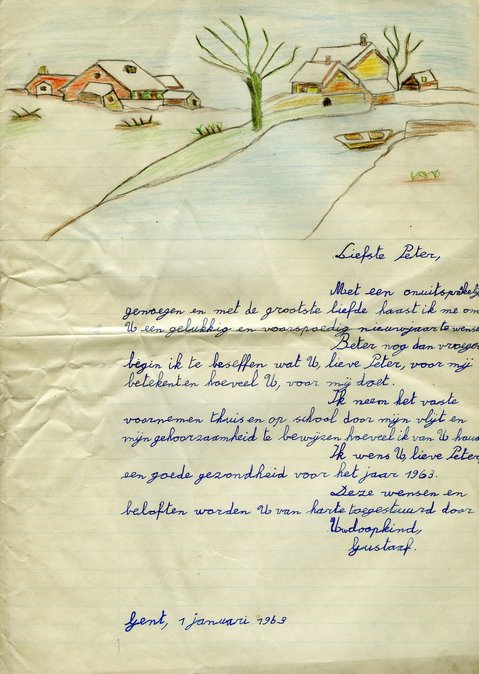 Liefste Peter,
Met een onuitsprekelij
genoegen en met de grootste liefde haast ik me om
U een gelukkig en voorspoedig nieuwjaar te wense
Beter nog dan vroeger
begin ik te beseffen wat U, lieve Peter, voor mij
betekent en hoeveel U, voor mij doet.
Ik neem het vaste
voornemen thuis en op school door mijn vlijt en
mijn gehoorzaamheid te bewijzen hoeveel ik van U houd
Ik wens U, lieve Peter,
een goede gezondheid voor het jaar 1963.
Deze wensen en
beloften worden U van harte toegestuurd door
Uw doopkind,
Gustaaf.
Gent, 1 januari 1963